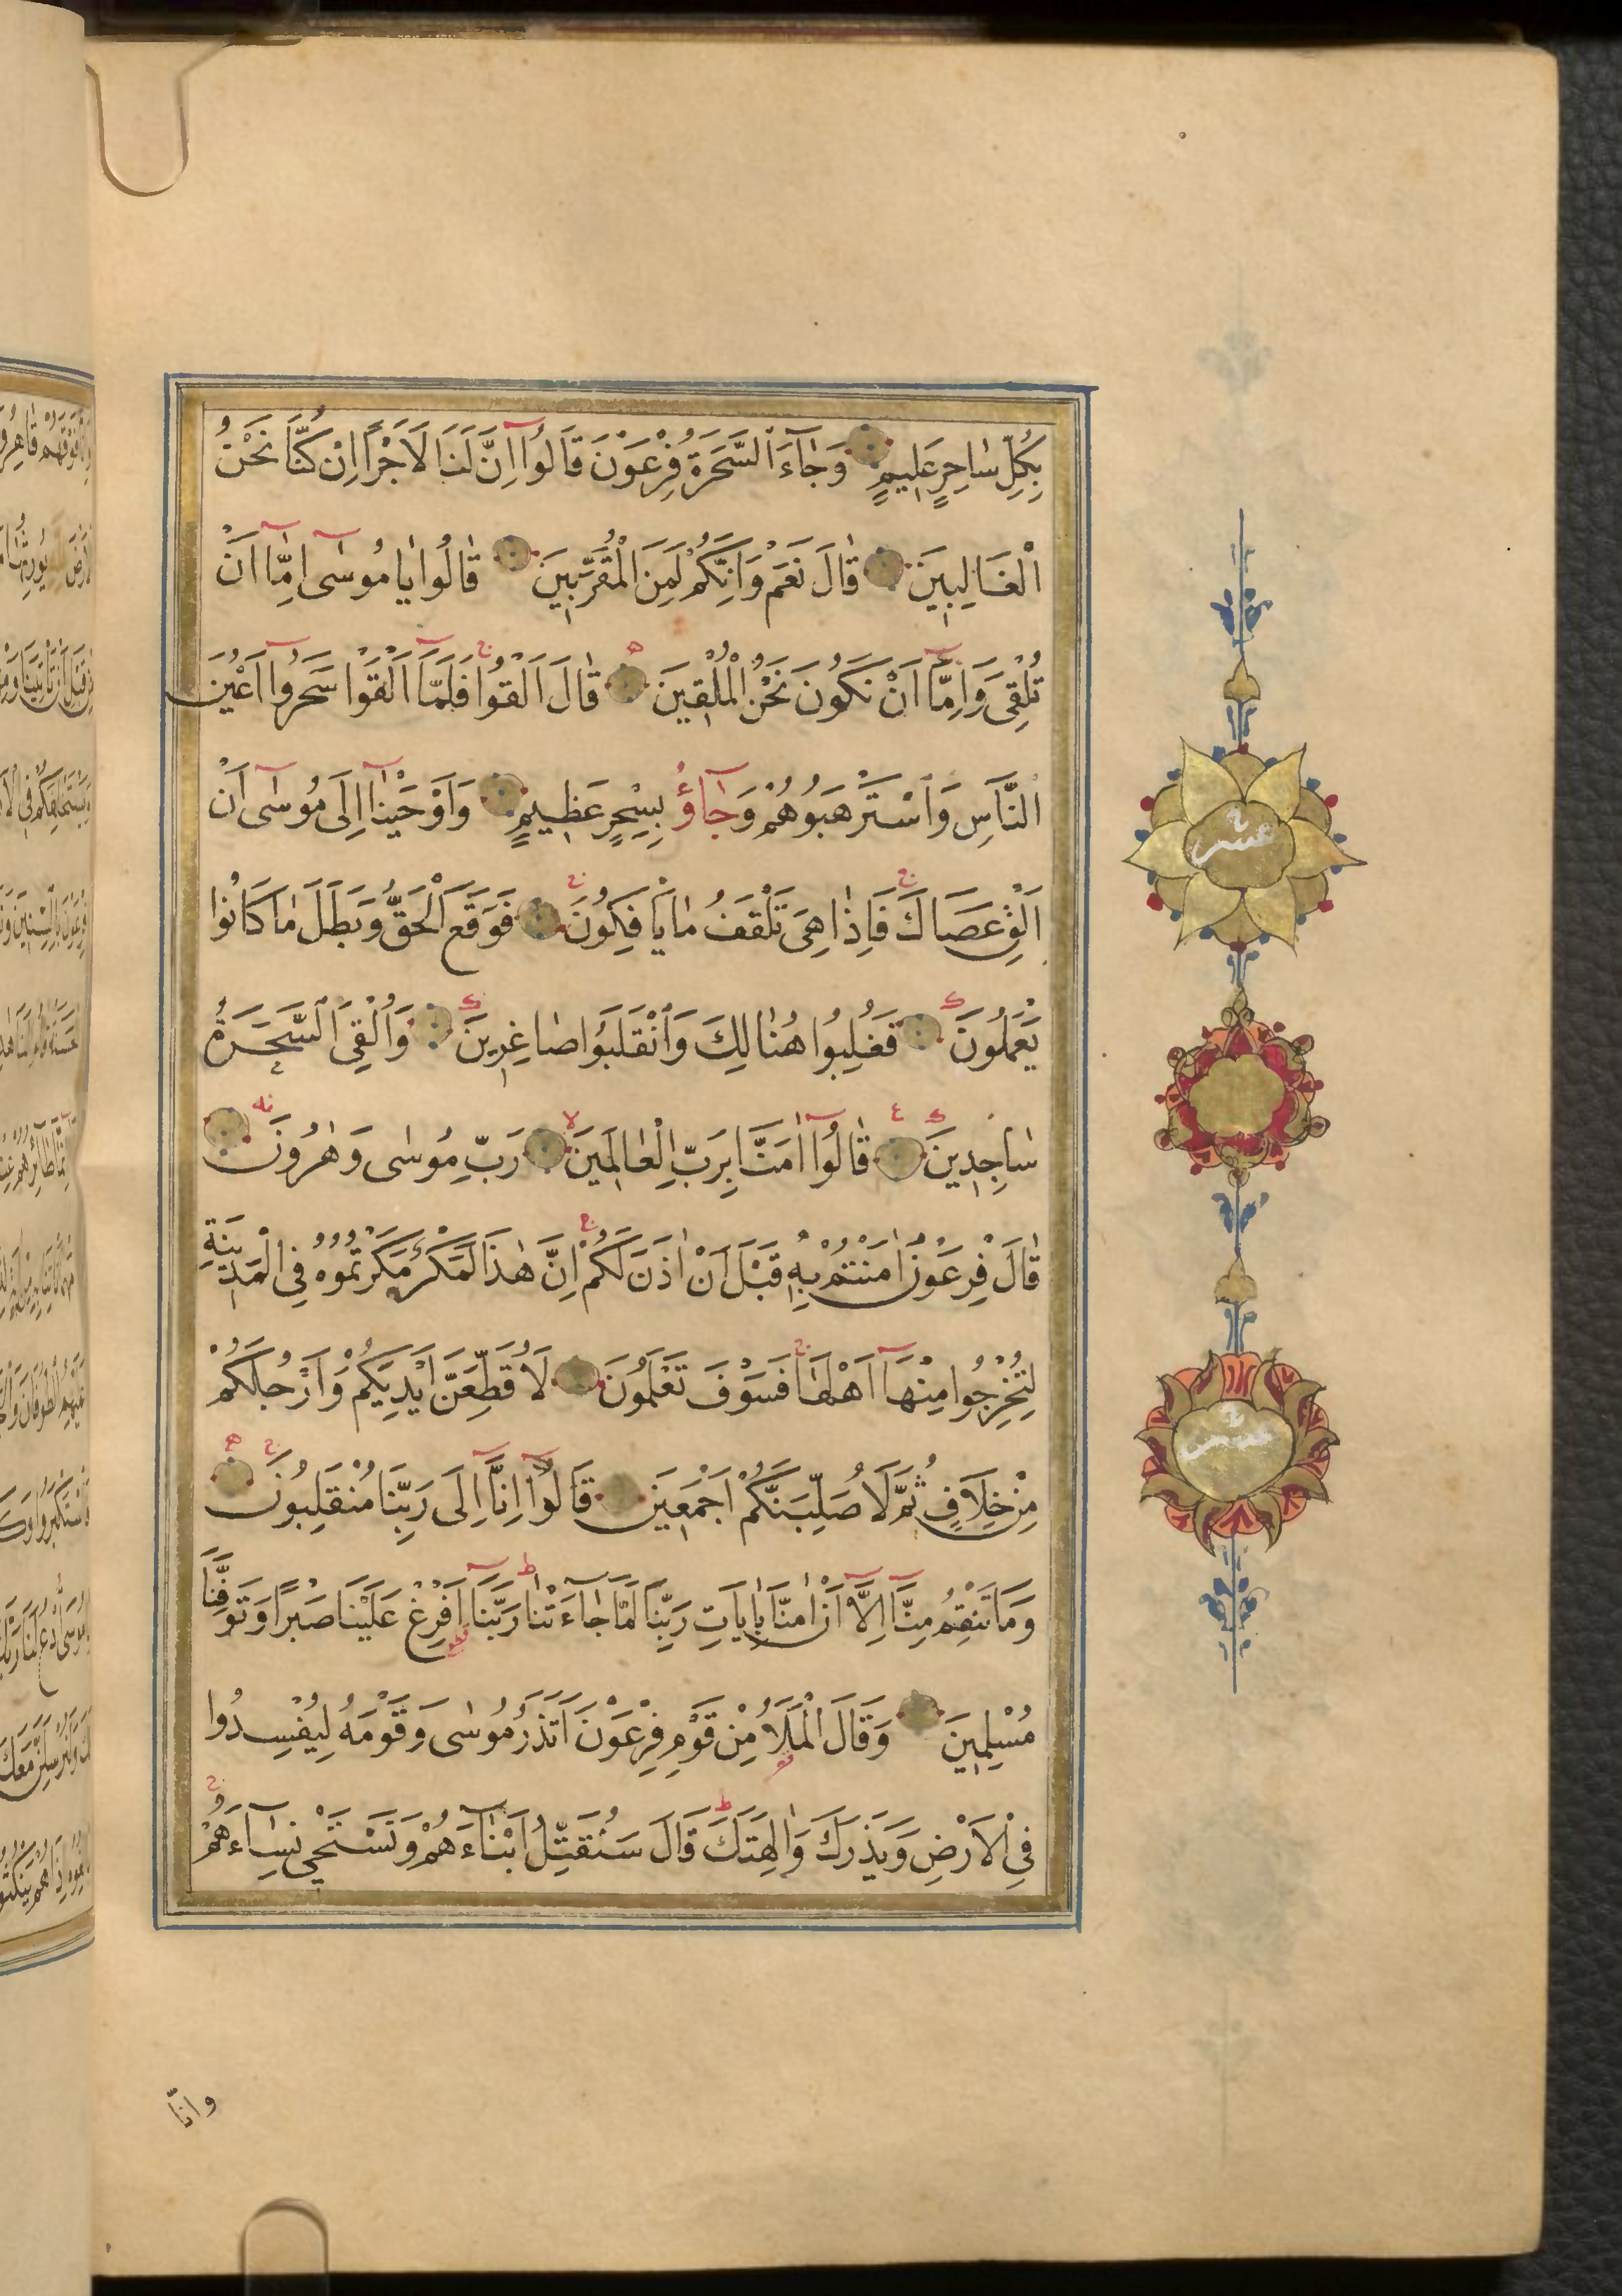 بِكُلِّ سَاحِرٍ عَلِيمٍ وَجَاءَ السَّحَرَةُ فِرْعَوْنَ قَالُوا اِنَّ لَنَا لَاَجْرًا اِنْ كُنَّا نَحْنُ
الْغَالِبِينَ قَالَ نَعَمْ وَاِنَّكُمْ لَمِنَ الْمُقَرَّبِينَ قَالُوا يَا مُوسٰى اِمَّا اَنْ
تُلْقِىَ وَاِمَّا اَنْ نَكُونَ نَحْنُ الْمُلْقِينَ قَالَ اَلْقُوا فَلَمَّا اَلْقَوْا سَحَرُوا اَعْيُنَ
النَّاسِ وَاسْتَرْهَبُوهُمْ وَجَاؤُ بِسِحْرٍ عَظِيمٍ وَاَوْحَيْنَا اِلٰى مُوسٰى اَنْ
اَلْقِ عَصَاكَ فَاِذَا هِىَ تَلْقَفُ مَا يَأْفِكُونَ فَوَقَعَ الْحَقُّ وَبَطَلَ مَا كَانُوا
يَعْمَلُونَ فَغُلِبُوا هُنَالِكَ وَانْقَلَبُوا صَاغِرِينَ وَاُلْقِىَ السَّحَرَةُ
سَاجِدِينَ قَالُوا اٰمَنَّا بِرَبِّ الْعَالَمِينَ رَبِّ مُوسٰى وَهٰرُونَ
قَالَ فِرْعَوْنُ اٰمَنْتُمْ بِهِ قَبْلَ اَنْ اٰذَنَ لَكُمْ اِنَّ هٰذَا لَمَكْرٌ مَكَرْتُمُوهُ فِى الْمَدِينَةِ
لِتُخْرِجُوا مِنْهَا اَهْلَهَا فَسَوْفَ تَعْلَمُونَ لَاُقَطِّعَنَّ اَيْدِيَكُمْ وَاَرْجُلَكُمْ
مِنْ خِلَافٍ ثُمَّ لَاُصَلِّبَنَّكُمْ اَجْمَعِينَ قَالُوا اِنَّا اِلٰى رَبِّنَا مُنْقَلِبُونَ
وَمَا تَنْقِمُ مِنَّا اِلَّا اَنْ اٰمَنَّا بِاٰيَاتِ رَبِّنَا لَمَّا جَاءَتْنَا رَبَّنَا اَفْرِغْ عَلَيْنَا صَبْرًا وَتَوَفَّنَا
مُسْلِمِينَ وَقَالَ الْمَلَاُ مِنْ قَوْمِ فِرْعَوْنَ اَتَذَرُ مُوسٰى وَقَوْمَهُ لِيُفْسِدُوا
فِى الْاَرْضِ وَيَذَرَكَ وَاٰلِهَتَكَ قَالَ سَنُقَتِّلُ اَبْنَاءَهُمْ وَنَسْتَحْيِى نِسَاءَهُمْ
وانّا
عشر
عشر